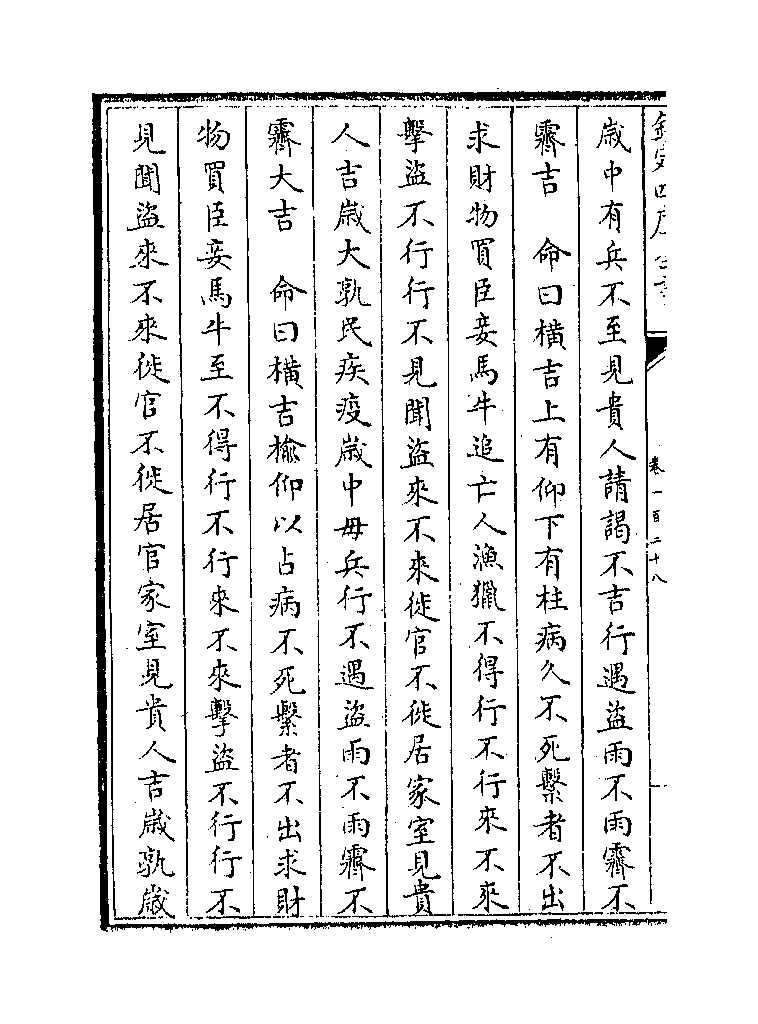 欽定四庫全書
卷一百二十八
歲中有兵不至見貴人請謁不吉行遇盜雨不雨霽不
霽吉　命曰橫吉上有仰下有柱病久不死繫者不出
求財物買臣妾馬牛追亡人漁獵不得行不行來不來
擊盜不行行不見聞盜來不來徙官不徙居家室見貴
人吉歲大孰民疾疫歲中毋兵行不遇盜雨不雨霽不
霽大吉　命曰橫吉榆仰以占病不死繫者不出求財
物買臣妾馬牛至不得行不行來不來擊盜不行行不
見聞盜來不來徙官不徙居官家室見貴人吉歲孰歲